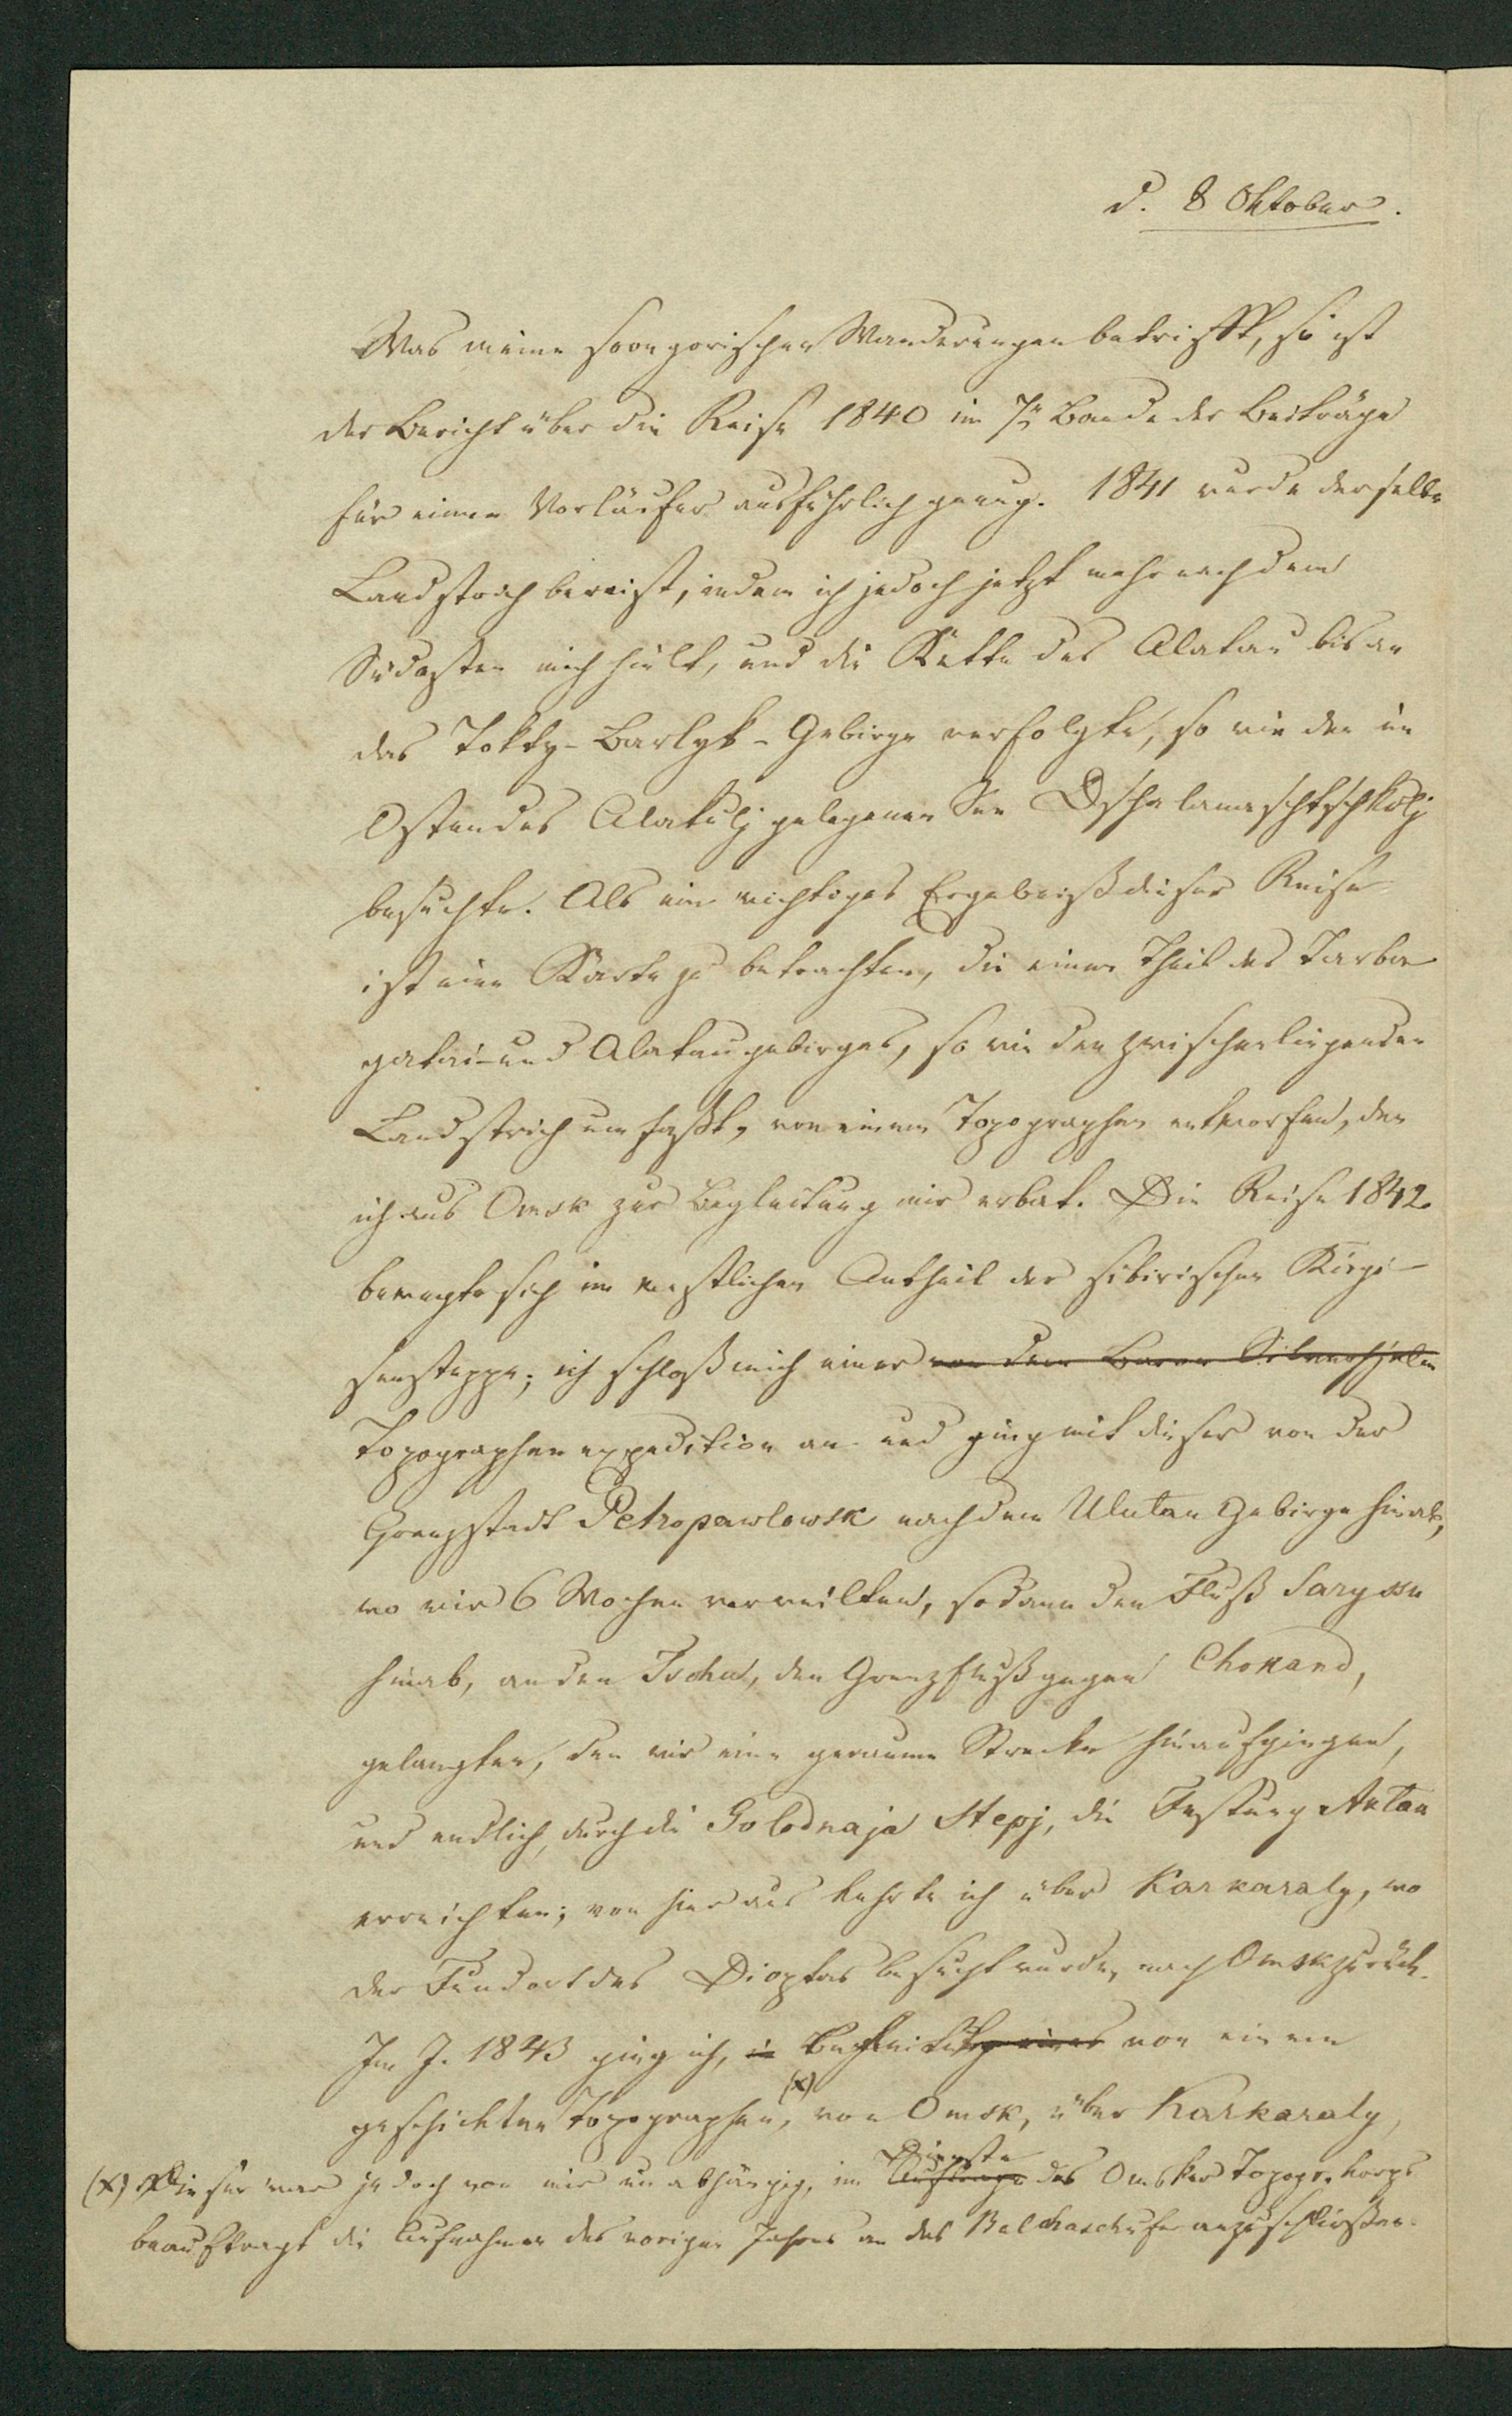 d. 8 Oktober.
Was meine soongorischen Wanderungen betrifft, so ist
der Bericht über die Reise 1840 im 7n Bande der Beiträge
für einen Vorläufer ausführlich genug. 1841 wurde derselbe
Landstrich bereist, indem ich jedoch jetzt mehr nach dem
Südosten mich hielt, und die Kette des Alatau bis an
das Tokty-Barlyk-Gebirge verfolgte, so wie den im
Osten des Alakulj gelegenen See Dschalanaschtschkolj
besuchte. Als ein wichtiges Ergebniß dieser Reise
ist eine Karte zu betrachten, die einen Theil des Tarba
gatai- und Alataugebirges, so wie den zwischenliegenden
Landstrich umfaßt, von einem Topographen entworfen, den
ich aus Omsk zur Begleitung mir erbat. Die Reise 1842
bewegte sich im westlichen Antheil der sibirischen Kirgi-
sensteppe; ich schloß mich einer von dem Baron Silverhjelm
Topographenexpedition an und ging mit dieser von der
Grenzstadt Petropawlowsk nach dem Ulutau Gebirge hinab,
wo wir 6 Wochen verweilten, sodann den Fluß Saryssu
hinab, an den Tschu, den Grenzfluß gegen Chokand,
gelangten, den wir eine geraume Strecke hinaufgingen,
und endlich, durch die Golodnaja Stepj, die Festung Aktau
erreichten; von hier aus kehrte ich über Karkaraly, wo
der Fundort des Dioptas besucht wurde, nach Omsk zurück.
Im J. 1843 ging ich, in Begleitung eines von einem
geschickten Topographen, (x) von Omsk, über Karkaraly,
(x) Dieser war jedoch von mir unabhängig, im Auftrage Dienste des Omsker Topogr. Korps
beauftragt die Aufnahmen des vorigen Jahres an das Balchaschufer anzuschließen.